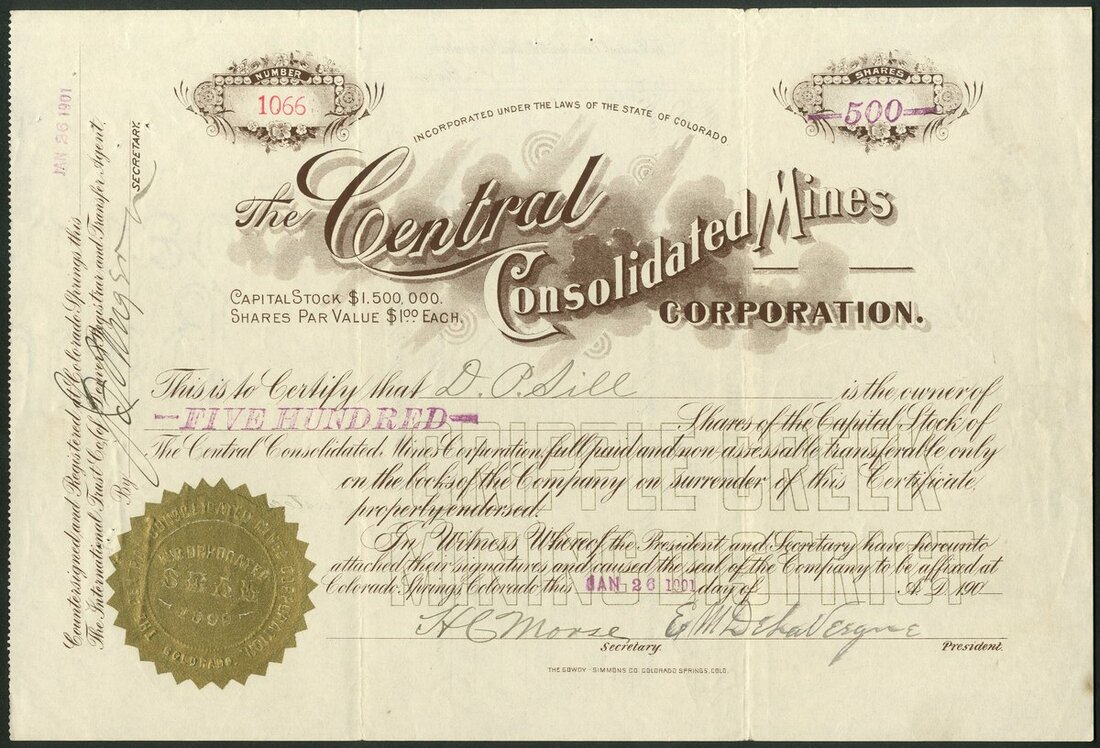 NUMBER
1066
SHARES
500
INCORPORATED UNDER THE LAWS OF THE STATE OF COLORADO
The Central
Consolidated Mines
CORPORATION.
CAPITAL STOCK $1,500,000.
SHARES PAR VALUE $1.00 EACH.
This is to Certify that D. P. Sill is the owner of
FIVE HUNDRED Shares of the Capital Stock of
The Central Consolidated Mines Corporation, full paid and non-assessable transferable only
on the books of the Company on surrender of this Certificate
properly endorsed.
CRIPPLE CREEK
MINING DISTRICT
In Witness Whereof, the President and Secretary have hereunto
attached their signatures and caused the seal of the Company to be affixed at
Colorado Springs, Colorado, this JAN 26 1901 day of A.D. 190
H C Morse E M De La Vergne
Secretary. President.
THE GOWDY-SIMMONS CO. COLORADO SPRINGS, COLO.
JAN 26 1901
Countersigned and Registered at Colorado Springs this
The International Trust Co. of Denver, Registrar and Transfer Agent.
By
SECRETARY.
THE CENTRAL CONSOLIDATED MINES CORPORATION.
INCORPORATED
SEAL
1900
COLORADO